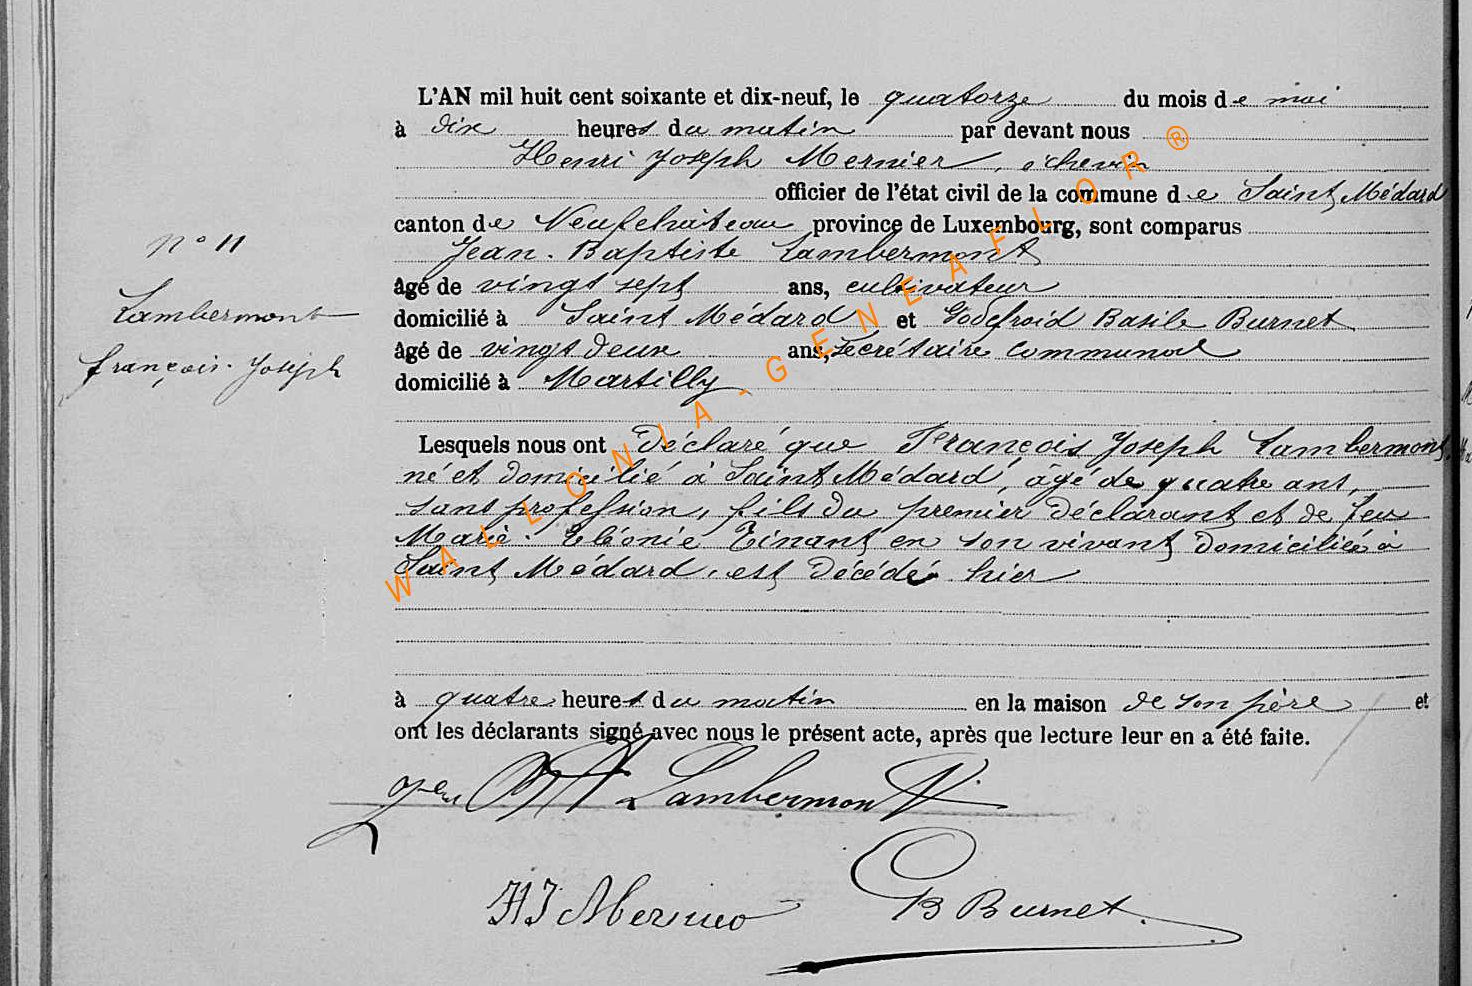 L'AN mil huit cent soixante et dix-neuf, le quatorze du mois de mai
à dix heures du matin par devant nous
Henri Joseph Mernier, échevin
officier de l'état civil de la commune de Saint Médard
canton de Neufchâteau province de Luxembourg, sont comparus
Jean-Baptiste Lambermont
âgé de vingt sept ans, cultivateur
domicilié à Saint Médard et Godefroid Basile Burnet
âgé de vingt deux ans, secrétaire communal
domicilié à Martilly
Lesquels nous ont déclaré que François Joseph Lambermont,
né et domicilié à Saint Médard, âgé de quatre ans,
sans profession, fils du premier déclarant et de feu
Marie-Eléonie Tinant en son vivant domiciliée à
Saint Médard, est décédé hier
à quatre heures du matin en la maison de son père et
ont les déclarants signé avec nous le présent acte, après que lecture leur en a été faite.
N° 11
Lambermont
françois-Joseph
Lambermont
HJ Mernier
GB Burnet
WALLONIA-GENEAFLOR®